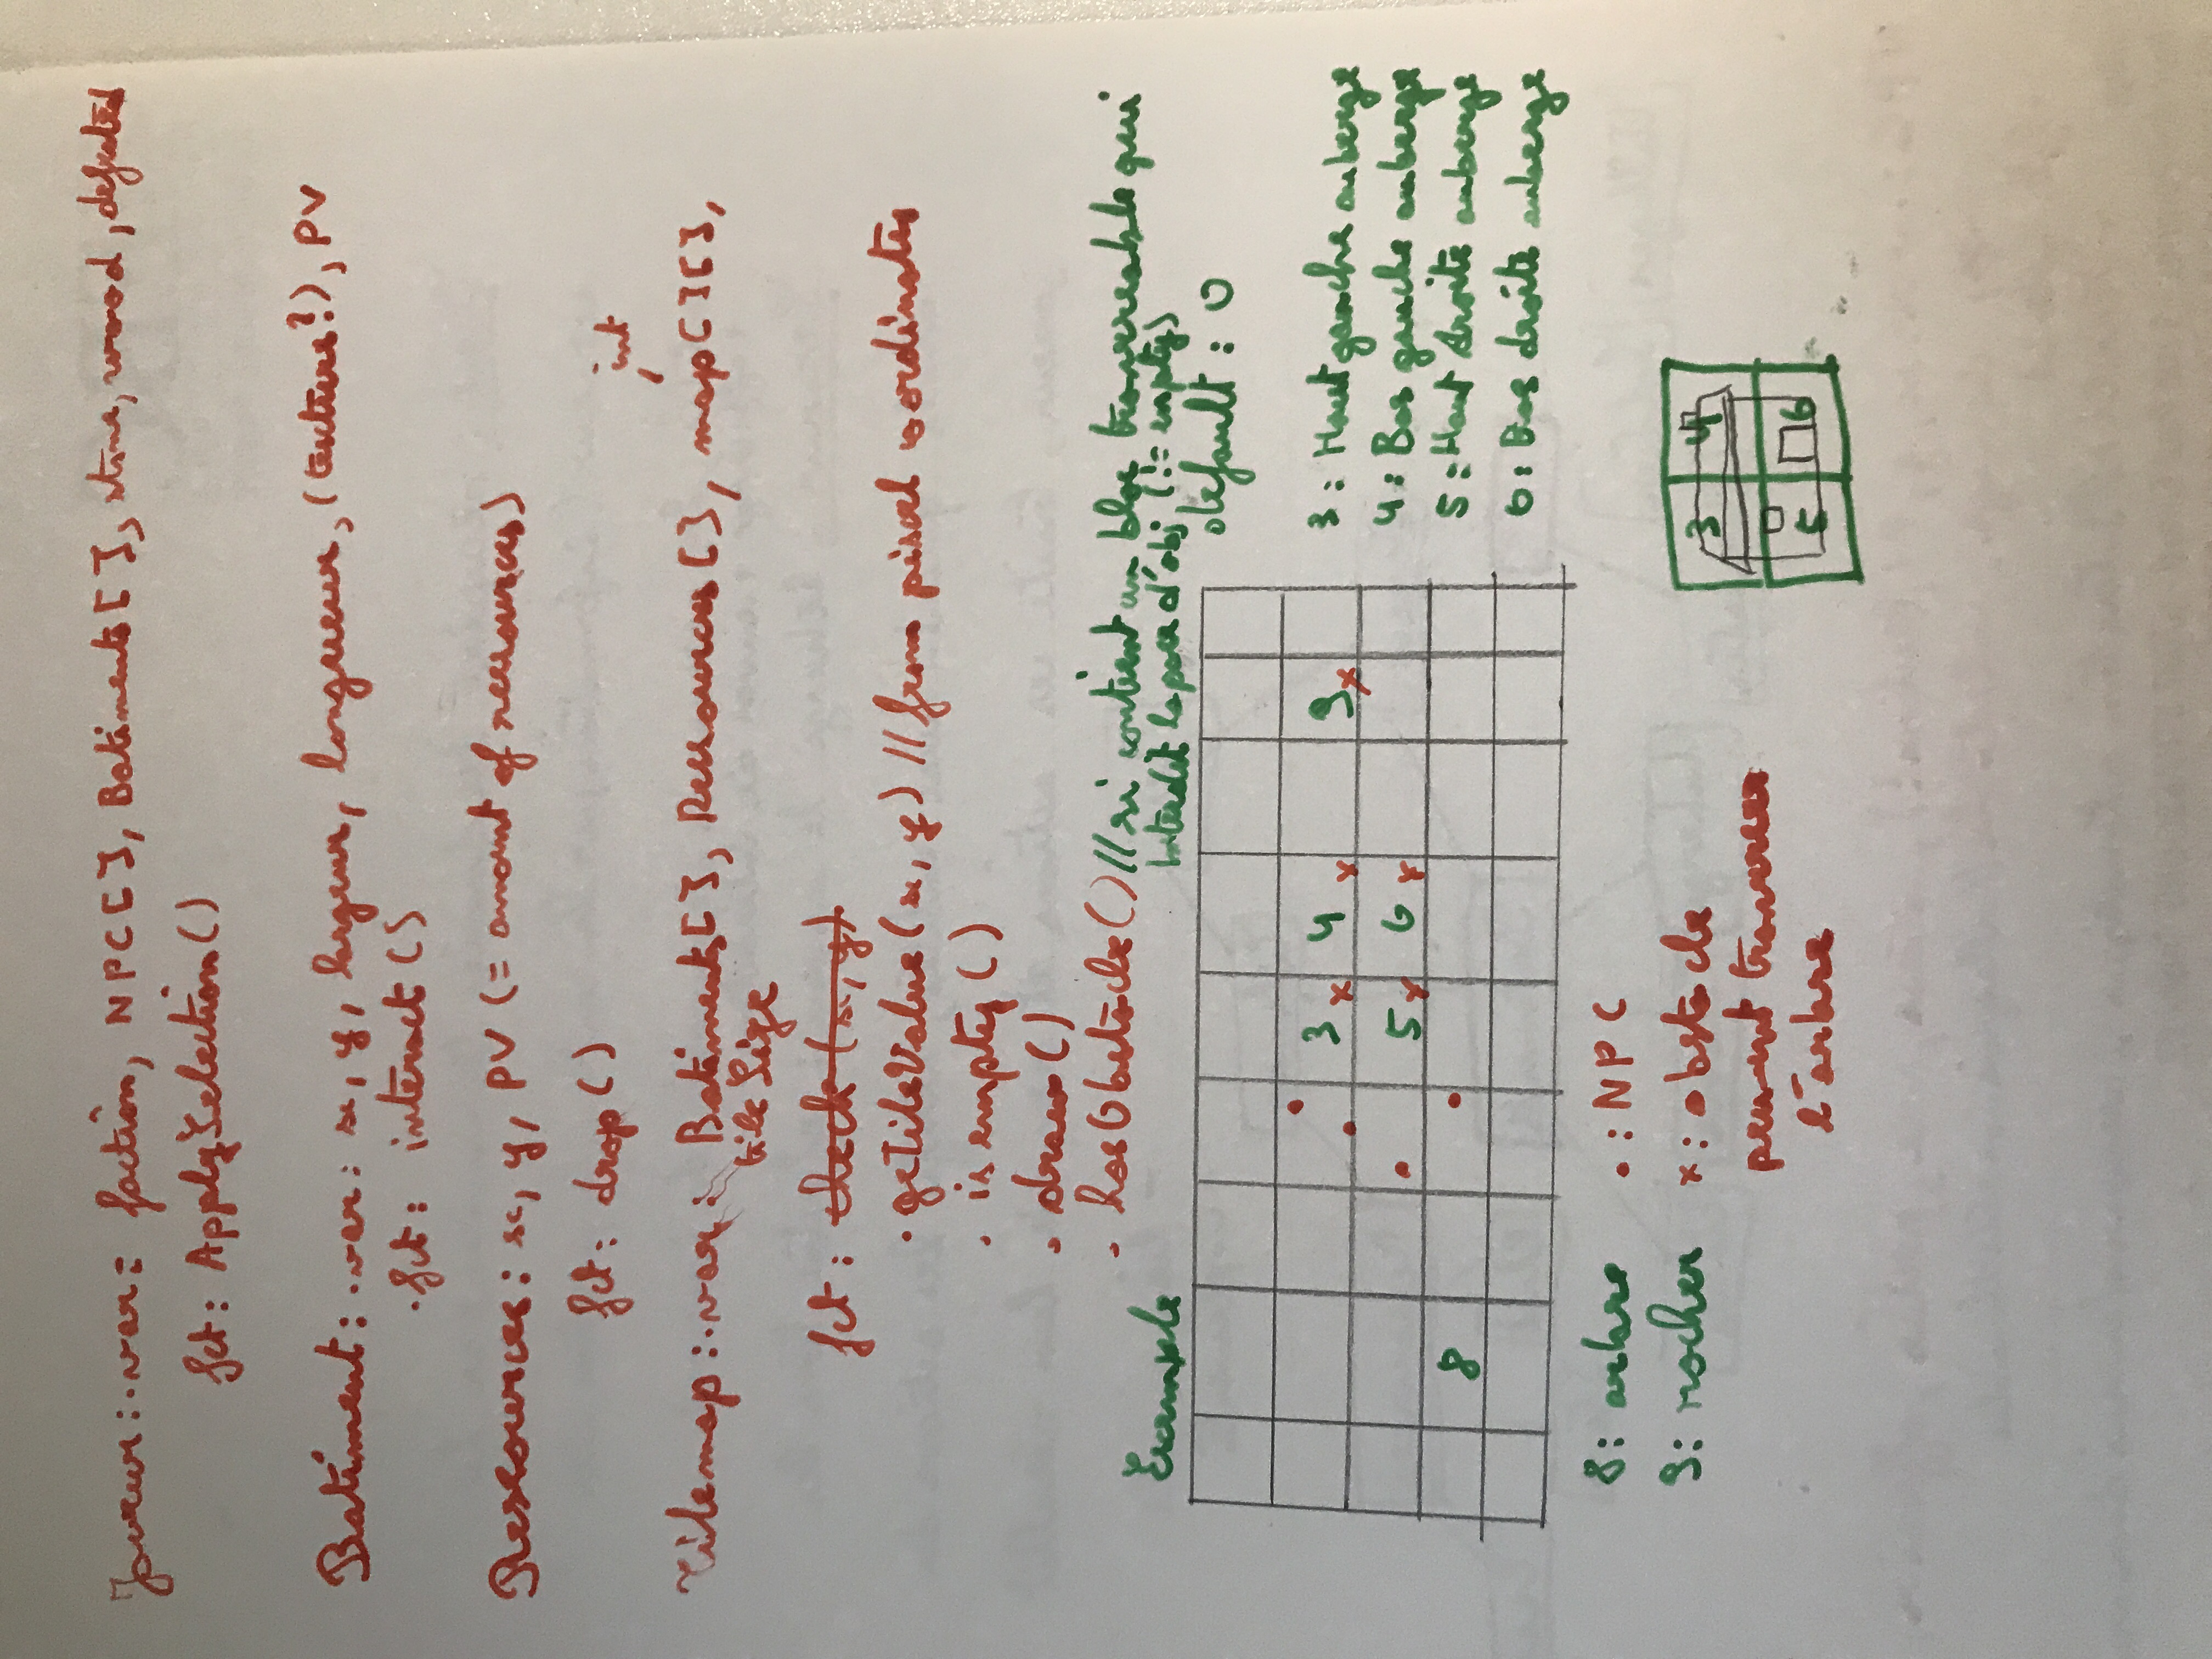 Joueur : . var : faction, NPC[], Batiments[], stone, wood, defeated
fct : ApplySelection()
Batiment : . var : x, y, largeur, longueur, (texture?), PV
. fct : interact()
Ressources : x, y, PV (= amount of ressources)
fct : drop()
int
Tilemap : . var : Batiments[], Ressources[], map[][],
tileSize
fct : check (x, y)
. getTileValue(x, y) // from pixel coordinates
. is empty()
. draw()
. hasObstacle() // si contient un bloc traversable qui
interdit la pose d'obj (!= empty)
Exemple
default : 0
3 4 9
5 6
8
3 : Haut gauche auberge
4 : Bas gauche auberge
5 : Haut droite auberge
6 : Bas droite auberge
8 : arbre . : NPC
9 : rocher x : obstacle
peuvent traverser
l'arbre
3 4
5 6